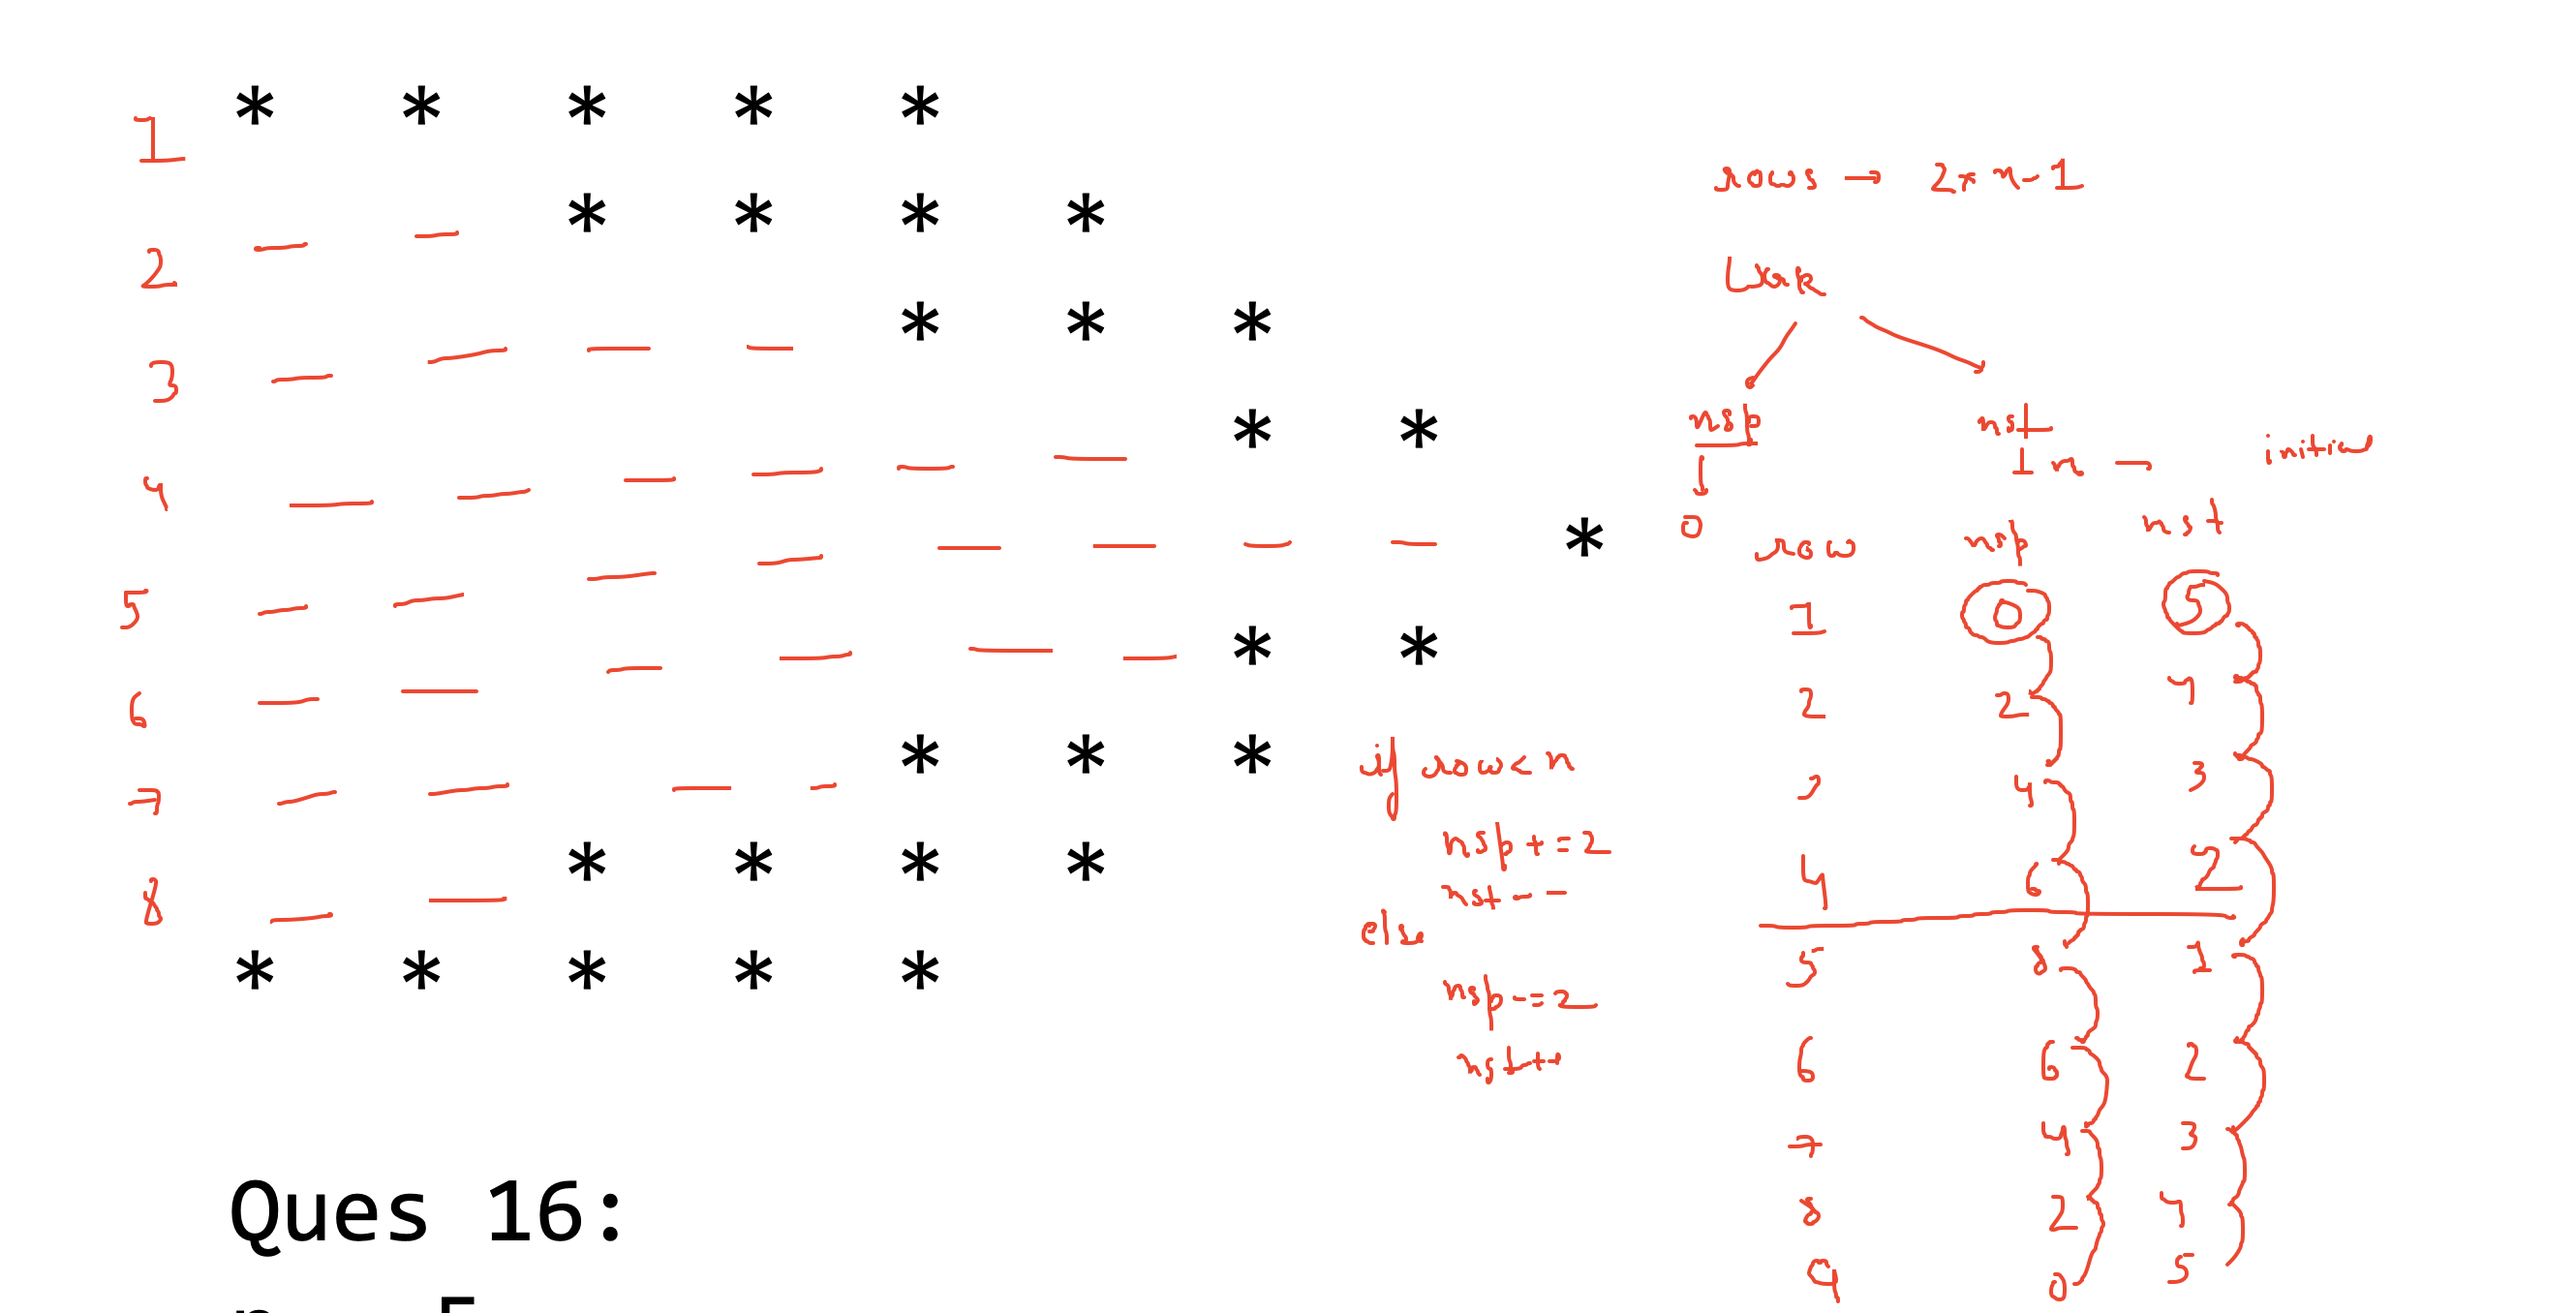 1 * * * * *
2 — — * * * *
3 — — — — * * *
4 — — — — — — * *
5 — — — — — — — — *
6 — — — — — — * *
7 — — — — * * *
8 — — * * * *
* * * * *
Ques 16:
rows → 2*n-1
work
nsp nst
↓ n → initial
0
row nsp nst
1 0 5
2 2 4
3 4 3
4 6 2
5 8 1
6 6 2
7 4 3
8 2 4
9 0 5
if row < n
nsp += 2
nst--
else
nsp -= 2
nst++